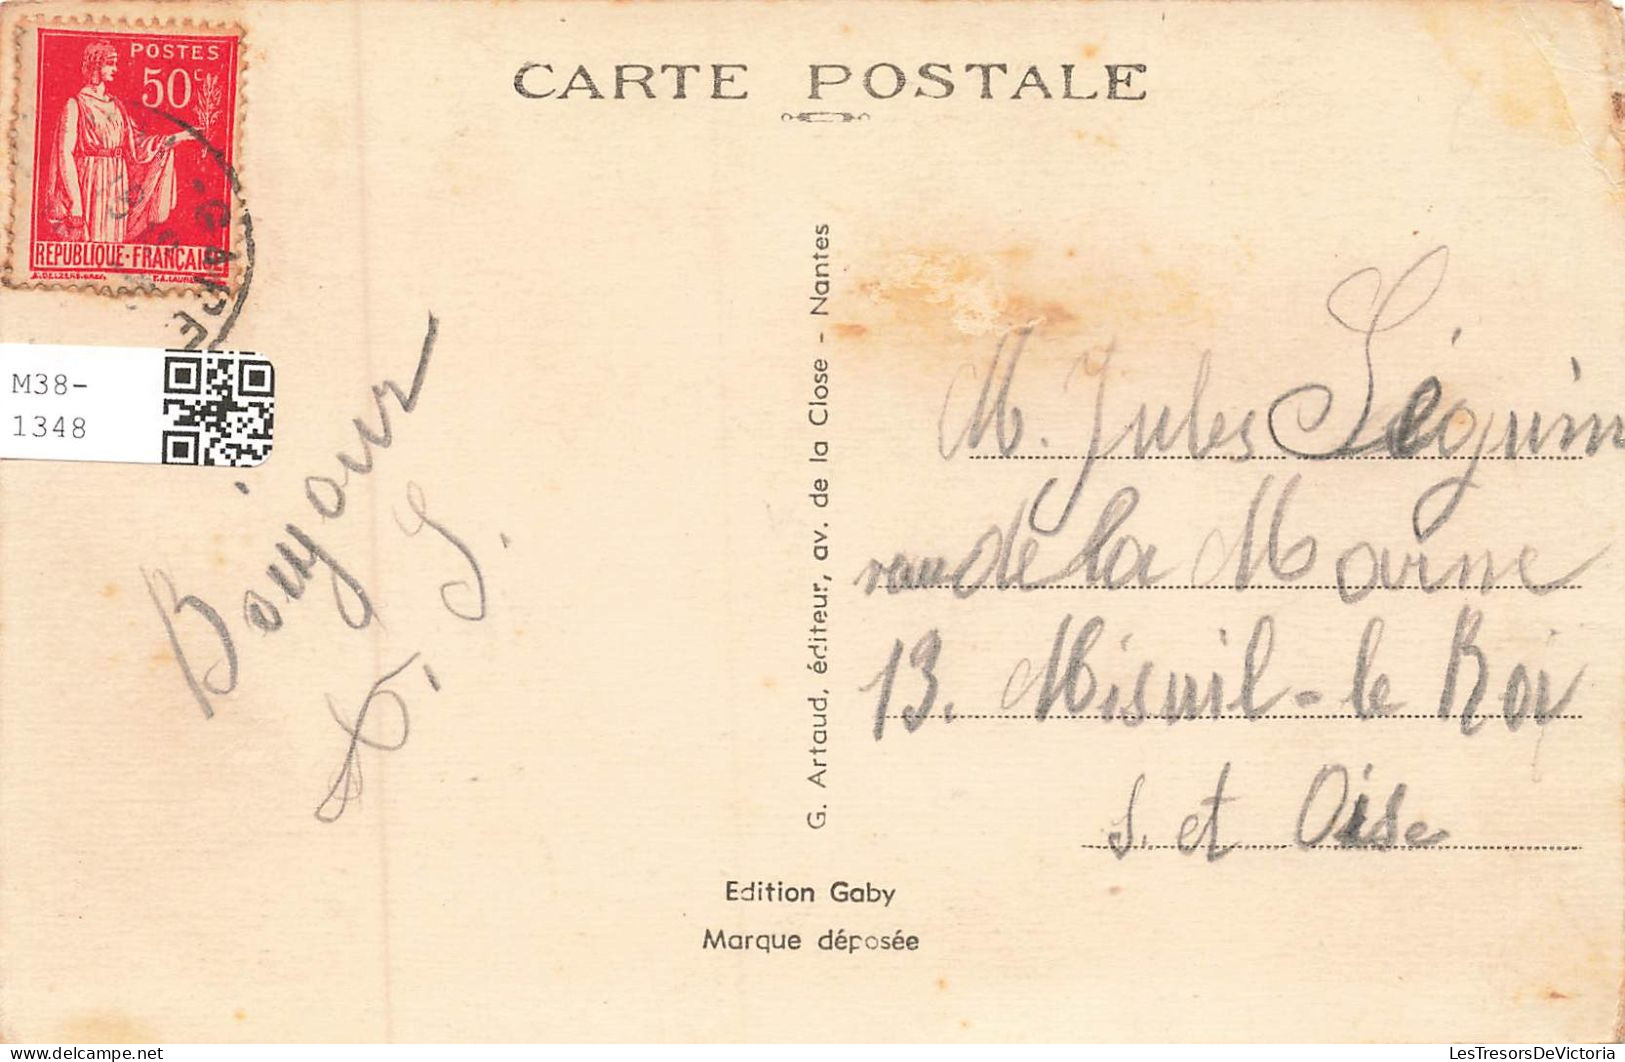 CARTE POSTALE
POSTES
50c
REPUBLIQUE-FRANÇAISE
GARE
M38-
1348
Bonjour
S.
G. Artaud, éditeur, av. de la Close - Nantes
M. Jules Séguin
de la Marne
13. Misnil-le Roi
S. et Oise
Edition Gaby
Marque déposée
LesTresorsDeVictoria